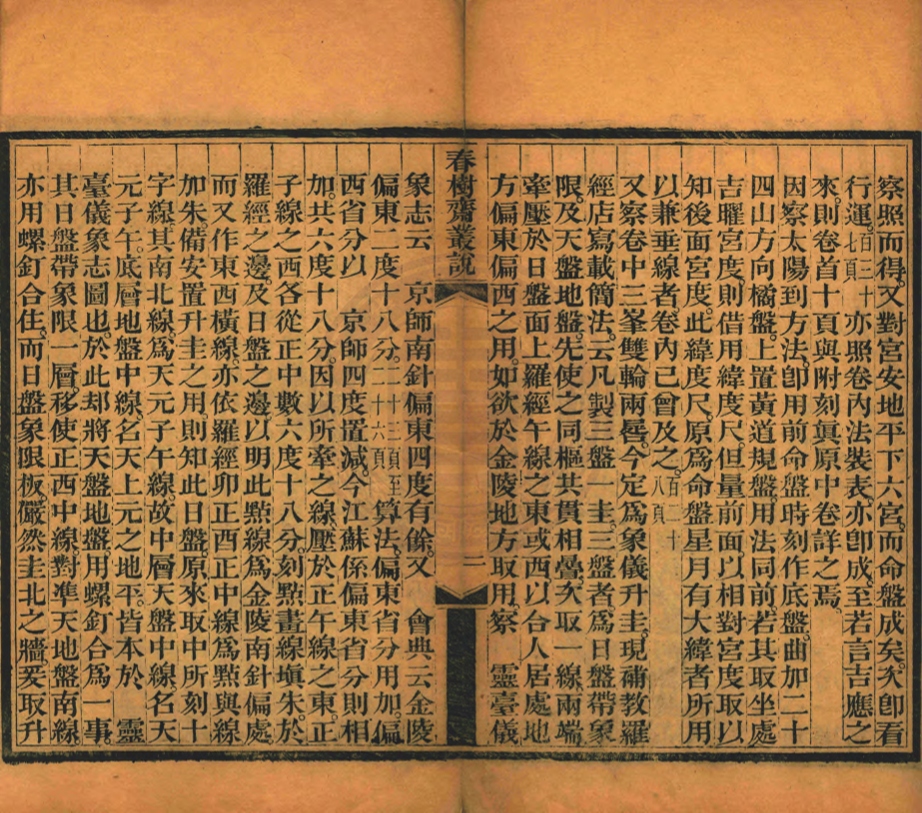 察照而得。又對宮安地平下六宮。而命盤成矣。次卽看
行運。百三十七頁亦照卷內法裝表。亦卽成。至若言吉應之
來。則卷首十頁與附刻眞原中卷詳之焉
因察太陽到方法。卽用前命盤時刻作底盤。曲加二十
四山方向橘盤。上置黃道規盤。用法同前。若其取坐處
吉曜宮度。則借用緯度尺。但量前面以相對宮度。取以
知後面宮度。此緯度尺。原爲命盤星月有大緯者所用
以兼垂線者。卷內已曾及之。百二十八頁
又察卷中三峯雙輪兩晷。今定爲象儀升圭。現補教羅
經店寫載簡法。云凡製三盤一圭。三盤者爲日盤帶象
限。及天盤地盤。先使之同樞共貫相疊。次取一線。兩端
牽壓於日盤面上羅經午線之東或西。以合人居處地
方偏東偏西之用。如欲於金陵地方取用。察 靈臺儀
春樹齋叢說 二
象志云 京師南針偏東四度有餘。又 會典云金陵
偏東二度十八分。二十二頁至二十六頁算法。偏東省分用加。偏
西省分以 京師四度置減。今江蘇係偏東省分則相
加。共六度十八分。因以所牽之線。壓於正午線之東。正
子線之西。各從正中數六度十八分。刻點畫線塡朱。於
羅經之邊。及日盤之邊。以明此點線爲金陵南針偏處
而又作東西橫線。亦依羅經卯正酉正中線爲點與線
加朱備安置升圭之用。則知此日盤。原來取中所刻十
字線。其南北線。爲天元子午線。故中層天盤中線。名天
元子午。底層地盤中線。名天上元之地平。皆本於 靈
臺儀象志圖也。於此却將天盤地盤。用螺釘合爲一事。
其日盤帶象限一層。移使正西中線。對準天地盤南線。
亦用螺釘合住。而日盤象限板。儼然圭北之牆。爰取升